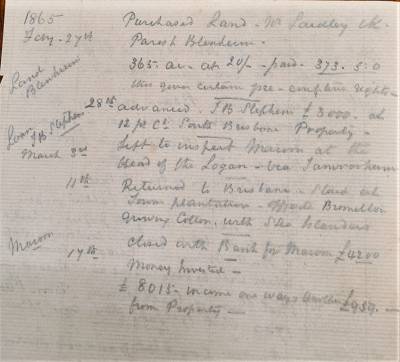 1865 Purchased Land - Mt Laidley Ck -
Feby - 27th Parish Blenheim -
Land Blenheim 365 ac - at 20/- paid - 373. 5. 0
this gives certain pre-emptive rights -
28th advanced J B Stephen £3000 - at
Loan J B Stephen 12 p Ct South Brisbane Property -
March 3rd Left to inspect Maroon at the
head of the Logan - via Tamrookum
11th Returned to Brisbane - Staid at
Town plantation - opposite Bromelton
Growing Cotton with S Sea Islanders
Maroon 17th closed with Bank for Maroon £4200
Money Invested -
£8015 - income one way & another £939 -
from Property -